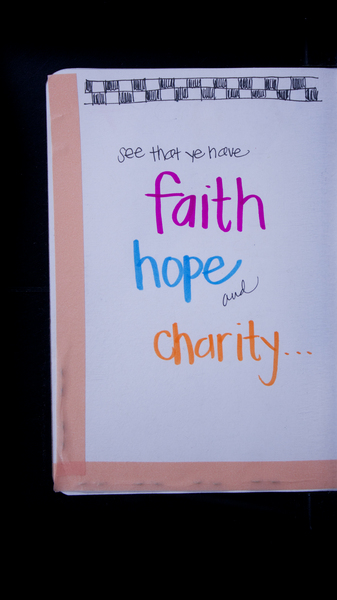 see that ye have
faith
hope
and
charity...